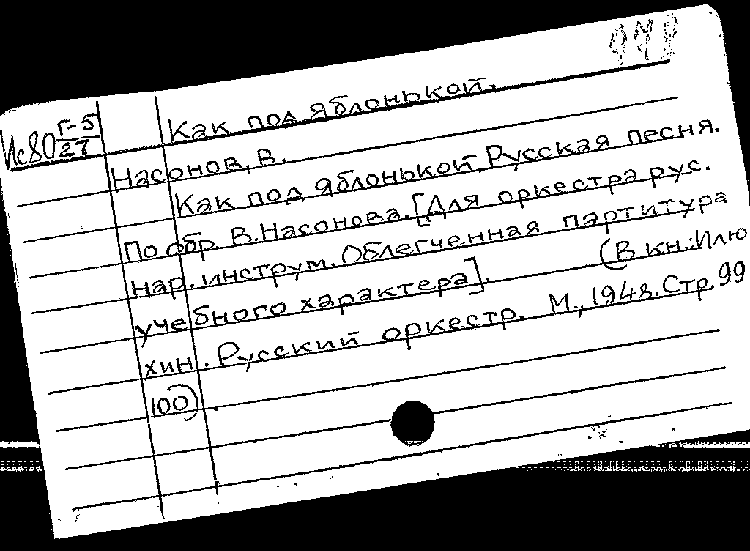 Ис80 Г-5/27
Как под яблонькой.
Насонов, В.
Как под яблонькой. Русская песня.
По обр. В. Насонова. [Для оркестра рус.
нар. инструм. Облегченная партитура
учебного характера]. (В кн.: Илю
хин. Русский оркестр. М., 1948. Стр. 99
100).